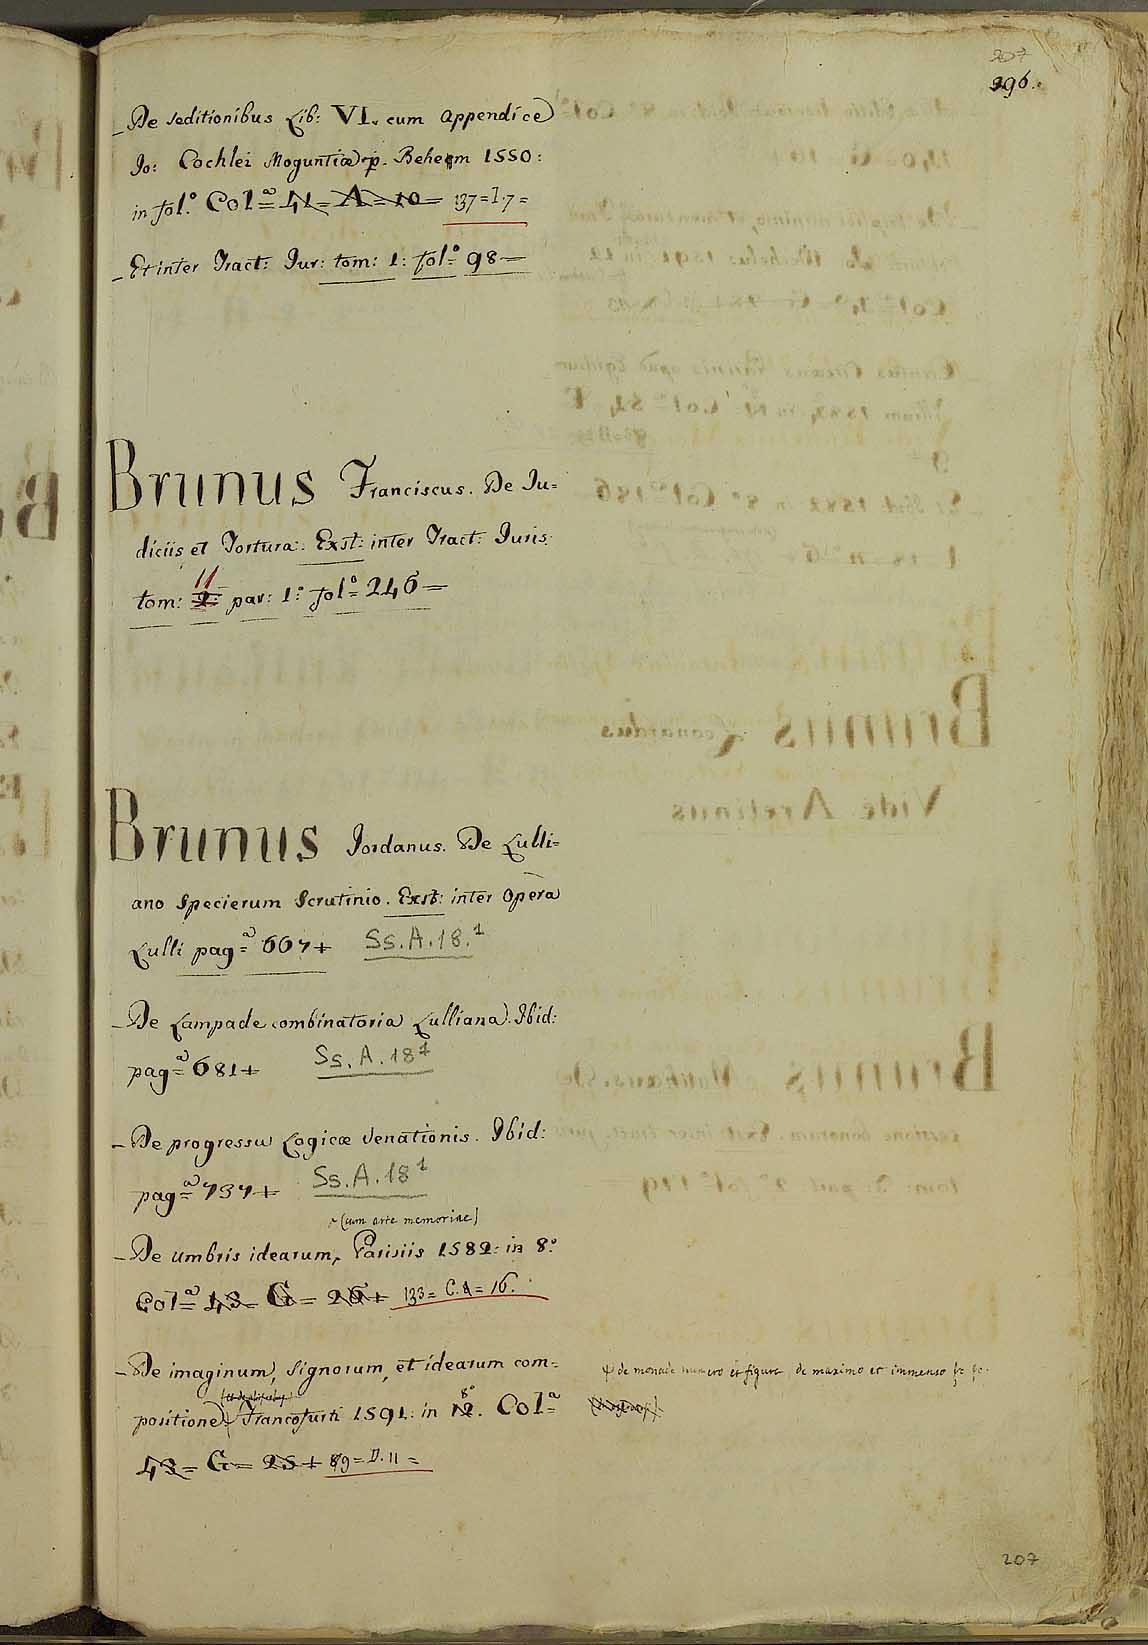 207
296.
_ De seditionibus Lib: VI. cum Appendice
Jo: Cochlei Moguntiæ p. Behem 1550:
in fol.º Colª= 41= A= 10= 137=I.7=
_ Et inter Tract: Jur: tom: 1: folº= 98=
Brunus Franciscus. De Ju=
diciis et Tortura. Exst: inter Tract: Juris
tom: 2: 11 par: 1: folº= 246=
Brunus Jordanus. De Lulli=
ano Specierum Scrutinio. Exst: inter Opera
Lulli pagª= 667+ Ss.A.18.1
_ De Lampade combinatoria Lulliana. Ibid:
pagª= 681+ Ss.A.18 1
_ De progressu Logicæ Venationis. Ibid:
pagª= 737+ Ss.A.18 1
(cum arte memoriae)
_ De umbris idearum, Parisiis 1582: in 8º
Colª= 43= G= 26+ 133= C.4= 16.
_ De imaginum, Signorum, et idearum com= de monade numero et figura de maximo et immenso
positione Francofurti 1591: in 12. 8º Colª=
43= G= 25+ 89= D.11=
207